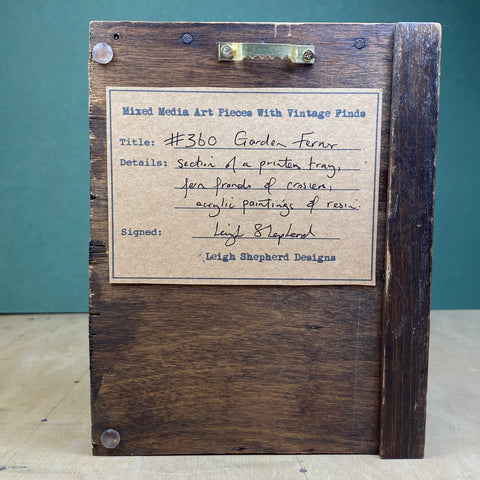 Mixed Media Art Pieces With Vintage Finds
Title: #360 Garden Ferns
Details: section of a printers tray,
fern fronds & crosiers,
acrylic paintings & resin
Signed: Leigh Shepherd
Leigh Shepherd Designs